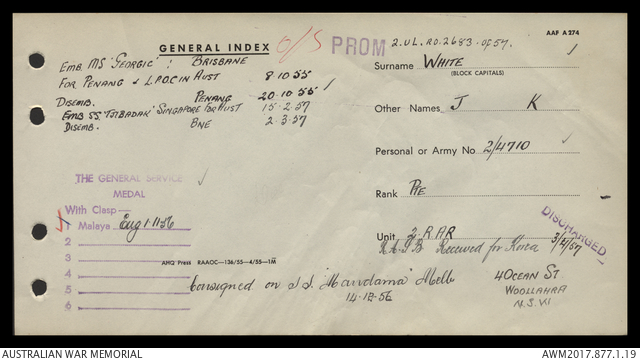 AAF A 274
GENERAL INDEX O/S PROM 2.U.L. R.O. 2683 of 57.
EMB. MS 'GEORGIC' : BRISBANE
FOR PENANG & L.P.O.C IN AUST 8.10.55
DISEMB. PENANG 20.10.55
EMB SS 'TJIBADAK' SINGAPORE FOR AUST 15.2.57
DISEMB. BNE 2.3.57
Surname WHITE
(BLOCK CAPITALS)
Other Names J K
Personal or Army No 2/4710
Rank PTE
Unit 2 RAR
DISCHARGED
3/4/57
Received for Korea
THE GENERAL SERVICE
MEDAL
With Clasp—
1 Malaya Eng 1-11-56
2
3
4
5
6
AHQ Press RAAOC—136/55—4/55—1M
Consigned on S.S. "Marudama" Melb
14-12-56
4 OCEAN ST
WOOLLAHRA
N.S.W
AUSTRALIAN WAR MEMORIAL
AWM2017.877.1.19